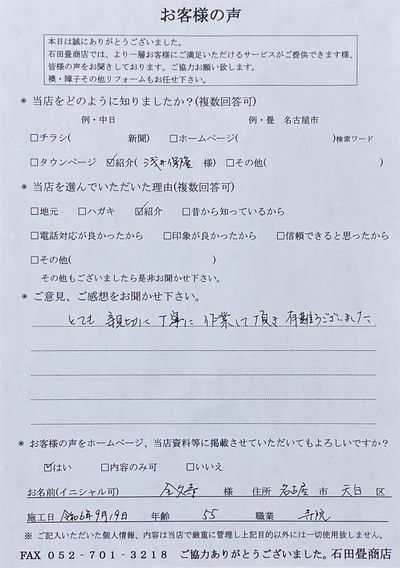 お客様の声
本日は誠にありがとうございました。
石田畳商店では、より一層お客様にご満足いただけるサービスがご提供できます様、
皆様の声をお聞きしております。ご協力お願い致します。
襖・障子その他リフォームもお任せ下さい。
＊当店をどのように知りましたか？(複数回答可)
例・中日　例・畳　名古屋市
□チラシ(　新聞)　□ホームページ(　)検索ワード
□タウンページ　☑紹介(　様)　□その他(　)
＊当店を選んでいただいた理由(複数回答可)
□地元　□ハガキ　☑紹介　□昔から知っているから
□電話対応が良かったから　□印象が良かったから　□信頼できると思ったから
□その他(　)
その他もございましたら是非お聞かせ下さい。
＊ご意見、ご感想をお聞かせ下さい。
とても親切に丁寧に作業して頂き有難うございました
＊お客様の声をホームページ、当店資料等に掲載させていただいてもよろしいですか？
☑はい　□内容のみ可　□いいえ
お名前(イニシャル可)　様　住所　名古屋　市　天白　区
施工日　令和6年9月19日　年齢　55　職業　寺院
※ ご記入いただいた個人情報、内容は当店で厳重に管理し上記目的以外には一切使用致しません。
FAX 052-701-3218　ご協力ありがとうございました。石田畳商店